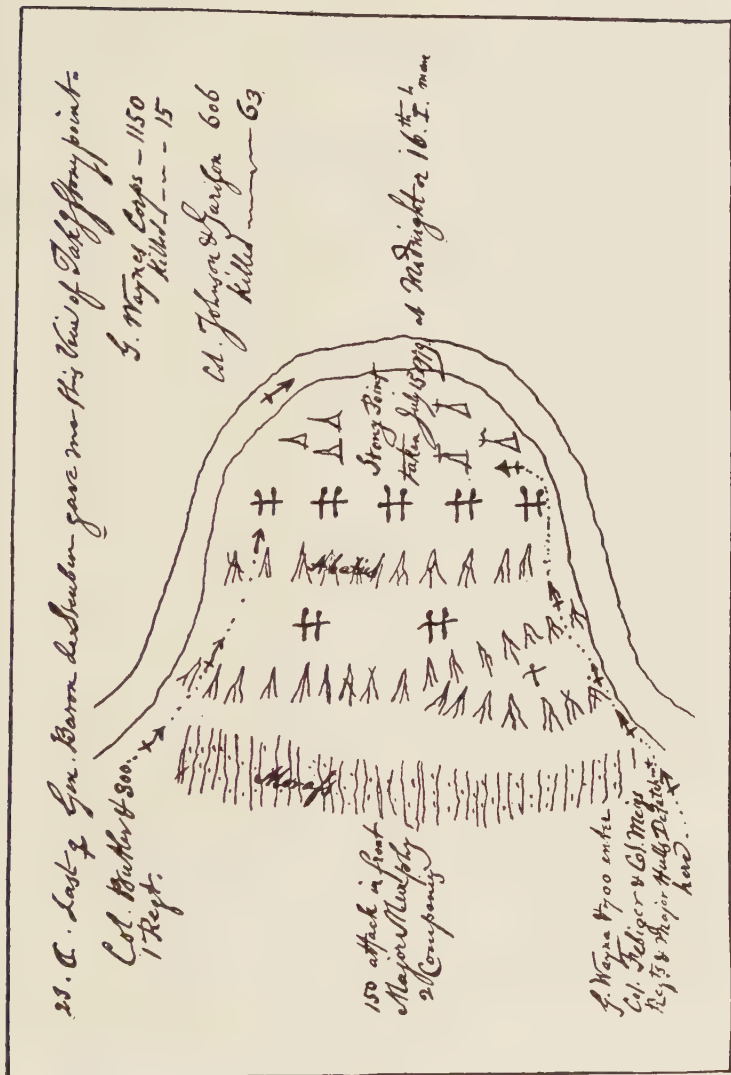 23. C. Last q Gen. Baron de Steuben gave me this View of Takg Stony point.
G. Waynes Corps – 1150
killed - - - 15
Col. Johnson & Garifon 606
killed 63
Col. Butler & 300.
1 Regt.
Stony Point
taken July 15 1779. at Midnight or 16th I. mane
Abatis
Morafs
150 attack in front
Major Murphy
2 Companies
G. Wayne & 700 enter
Col. Febiger & Col. Meigs
Regts & Major Hulls Detachmt
here